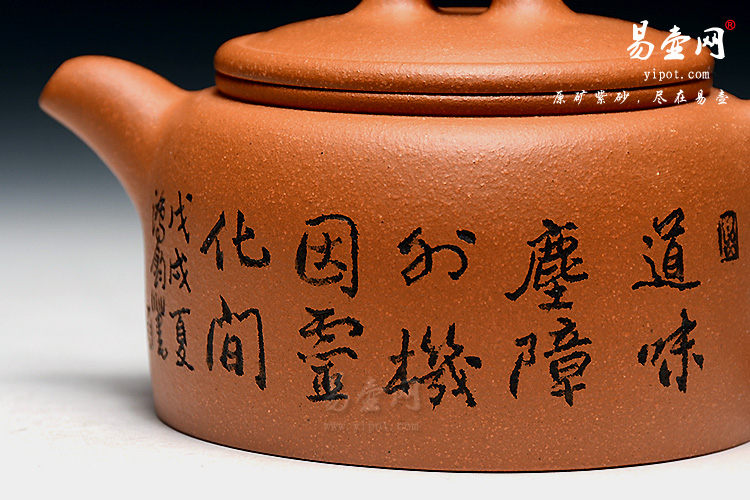 易壶网®
yipot.com
原矿紫砂，尽在易壶
道味
塵障
外機
因靈
化間
戊戌夏
易壶网
www.yipot.com